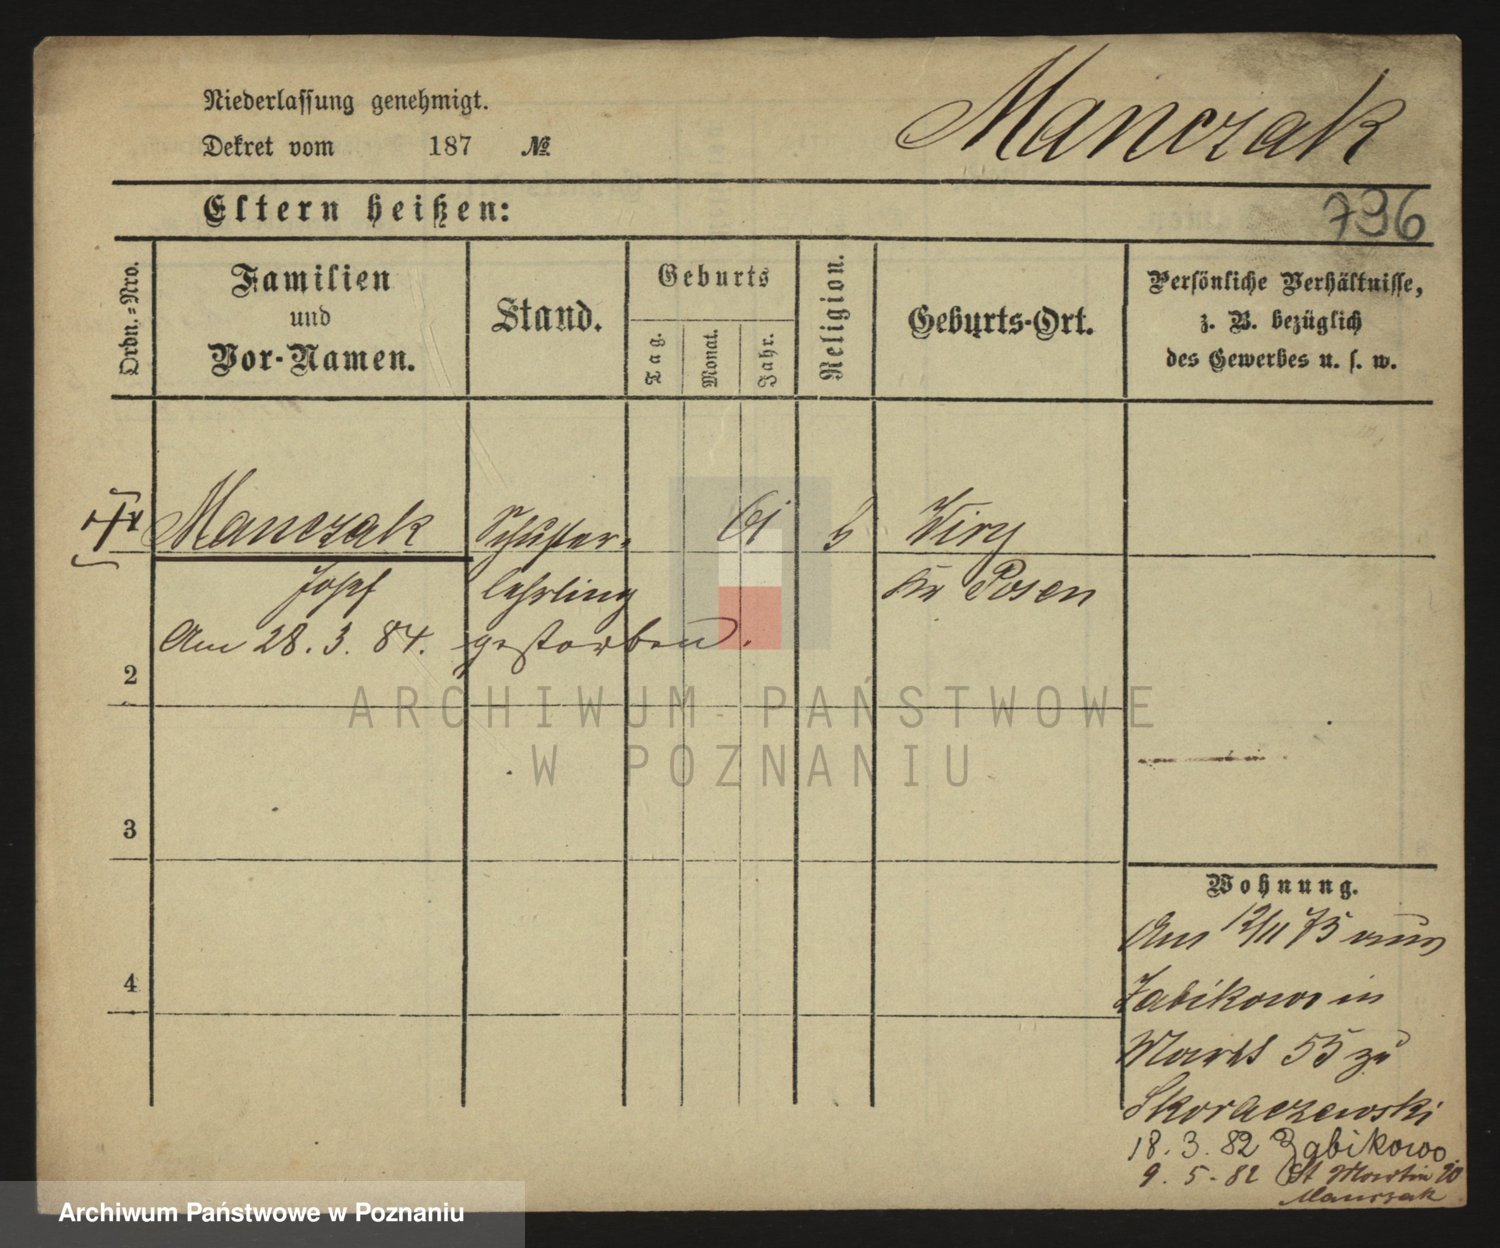 Niederlassung genehmigt.
Dekret vom 187 №
Manczak
Eltern heißen:
736
Ordn.-Nro.
Familien
und
Vor-Namen.
Stand.
Geburts
Tag.
Monat.
Jahr.
Religion.
Geburts-Ort.
Persönliche Verhältnisse,
z. B. bezüglich
des Gewerbes u. s. w.
Manczak Schuster- 61 Wiry
Josef lehrling Kr Posen
Am 28. 3. 84. gestorben.
2
ARCHIWUM PAŃSTWOWE
W POZNANIU
3
Wohnung.
Am 12/11 75 aus
4
Zabikowo in
Markt 55 zu
Skoraczewski
18. 3. 82 Zabikowo
9. 5. 82 St Martin
Manczak
Archiwum Państwowe w Poznaniu